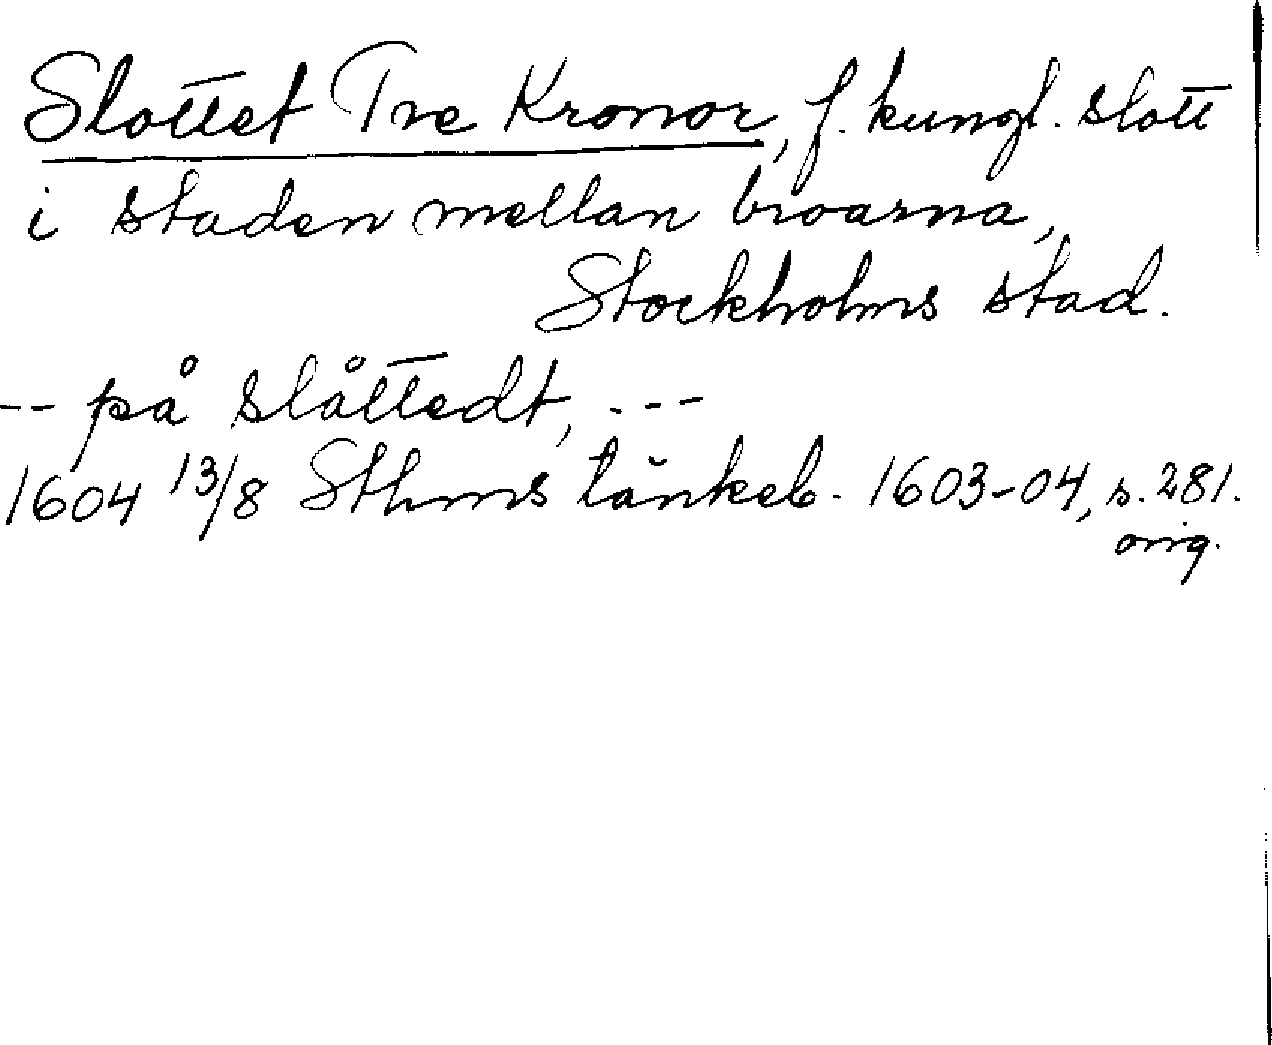 Slottet Tre Kronor, f. kungl. slott
i staden mellan broarna,
Stockholms stad.
-- på slåttedt, ---
1604 13/8 Sthms tänkeb. 1603-04, s. 281.
orig.